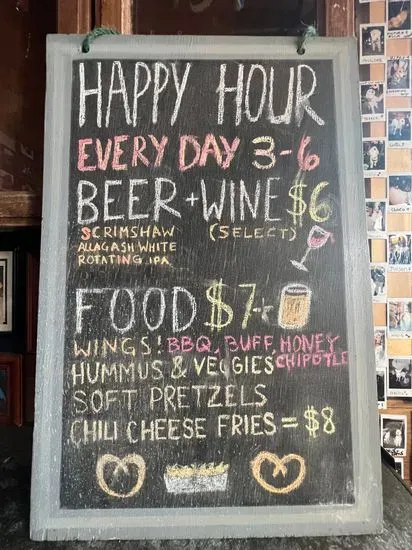 HAPPY HOUR
EVERY DAY 3-6
BEER + WINE $6
SCRIMSHAW (SELECT)
ALLAGASH WHITE
ROTATING IPA
FOOD $7
WINGS! BBQ, BUFF, HONEY CHIPOTLE
HUMMUS & VEGGIES
SOFT PRETZELS
CHILI CHEESE FRIES = $8